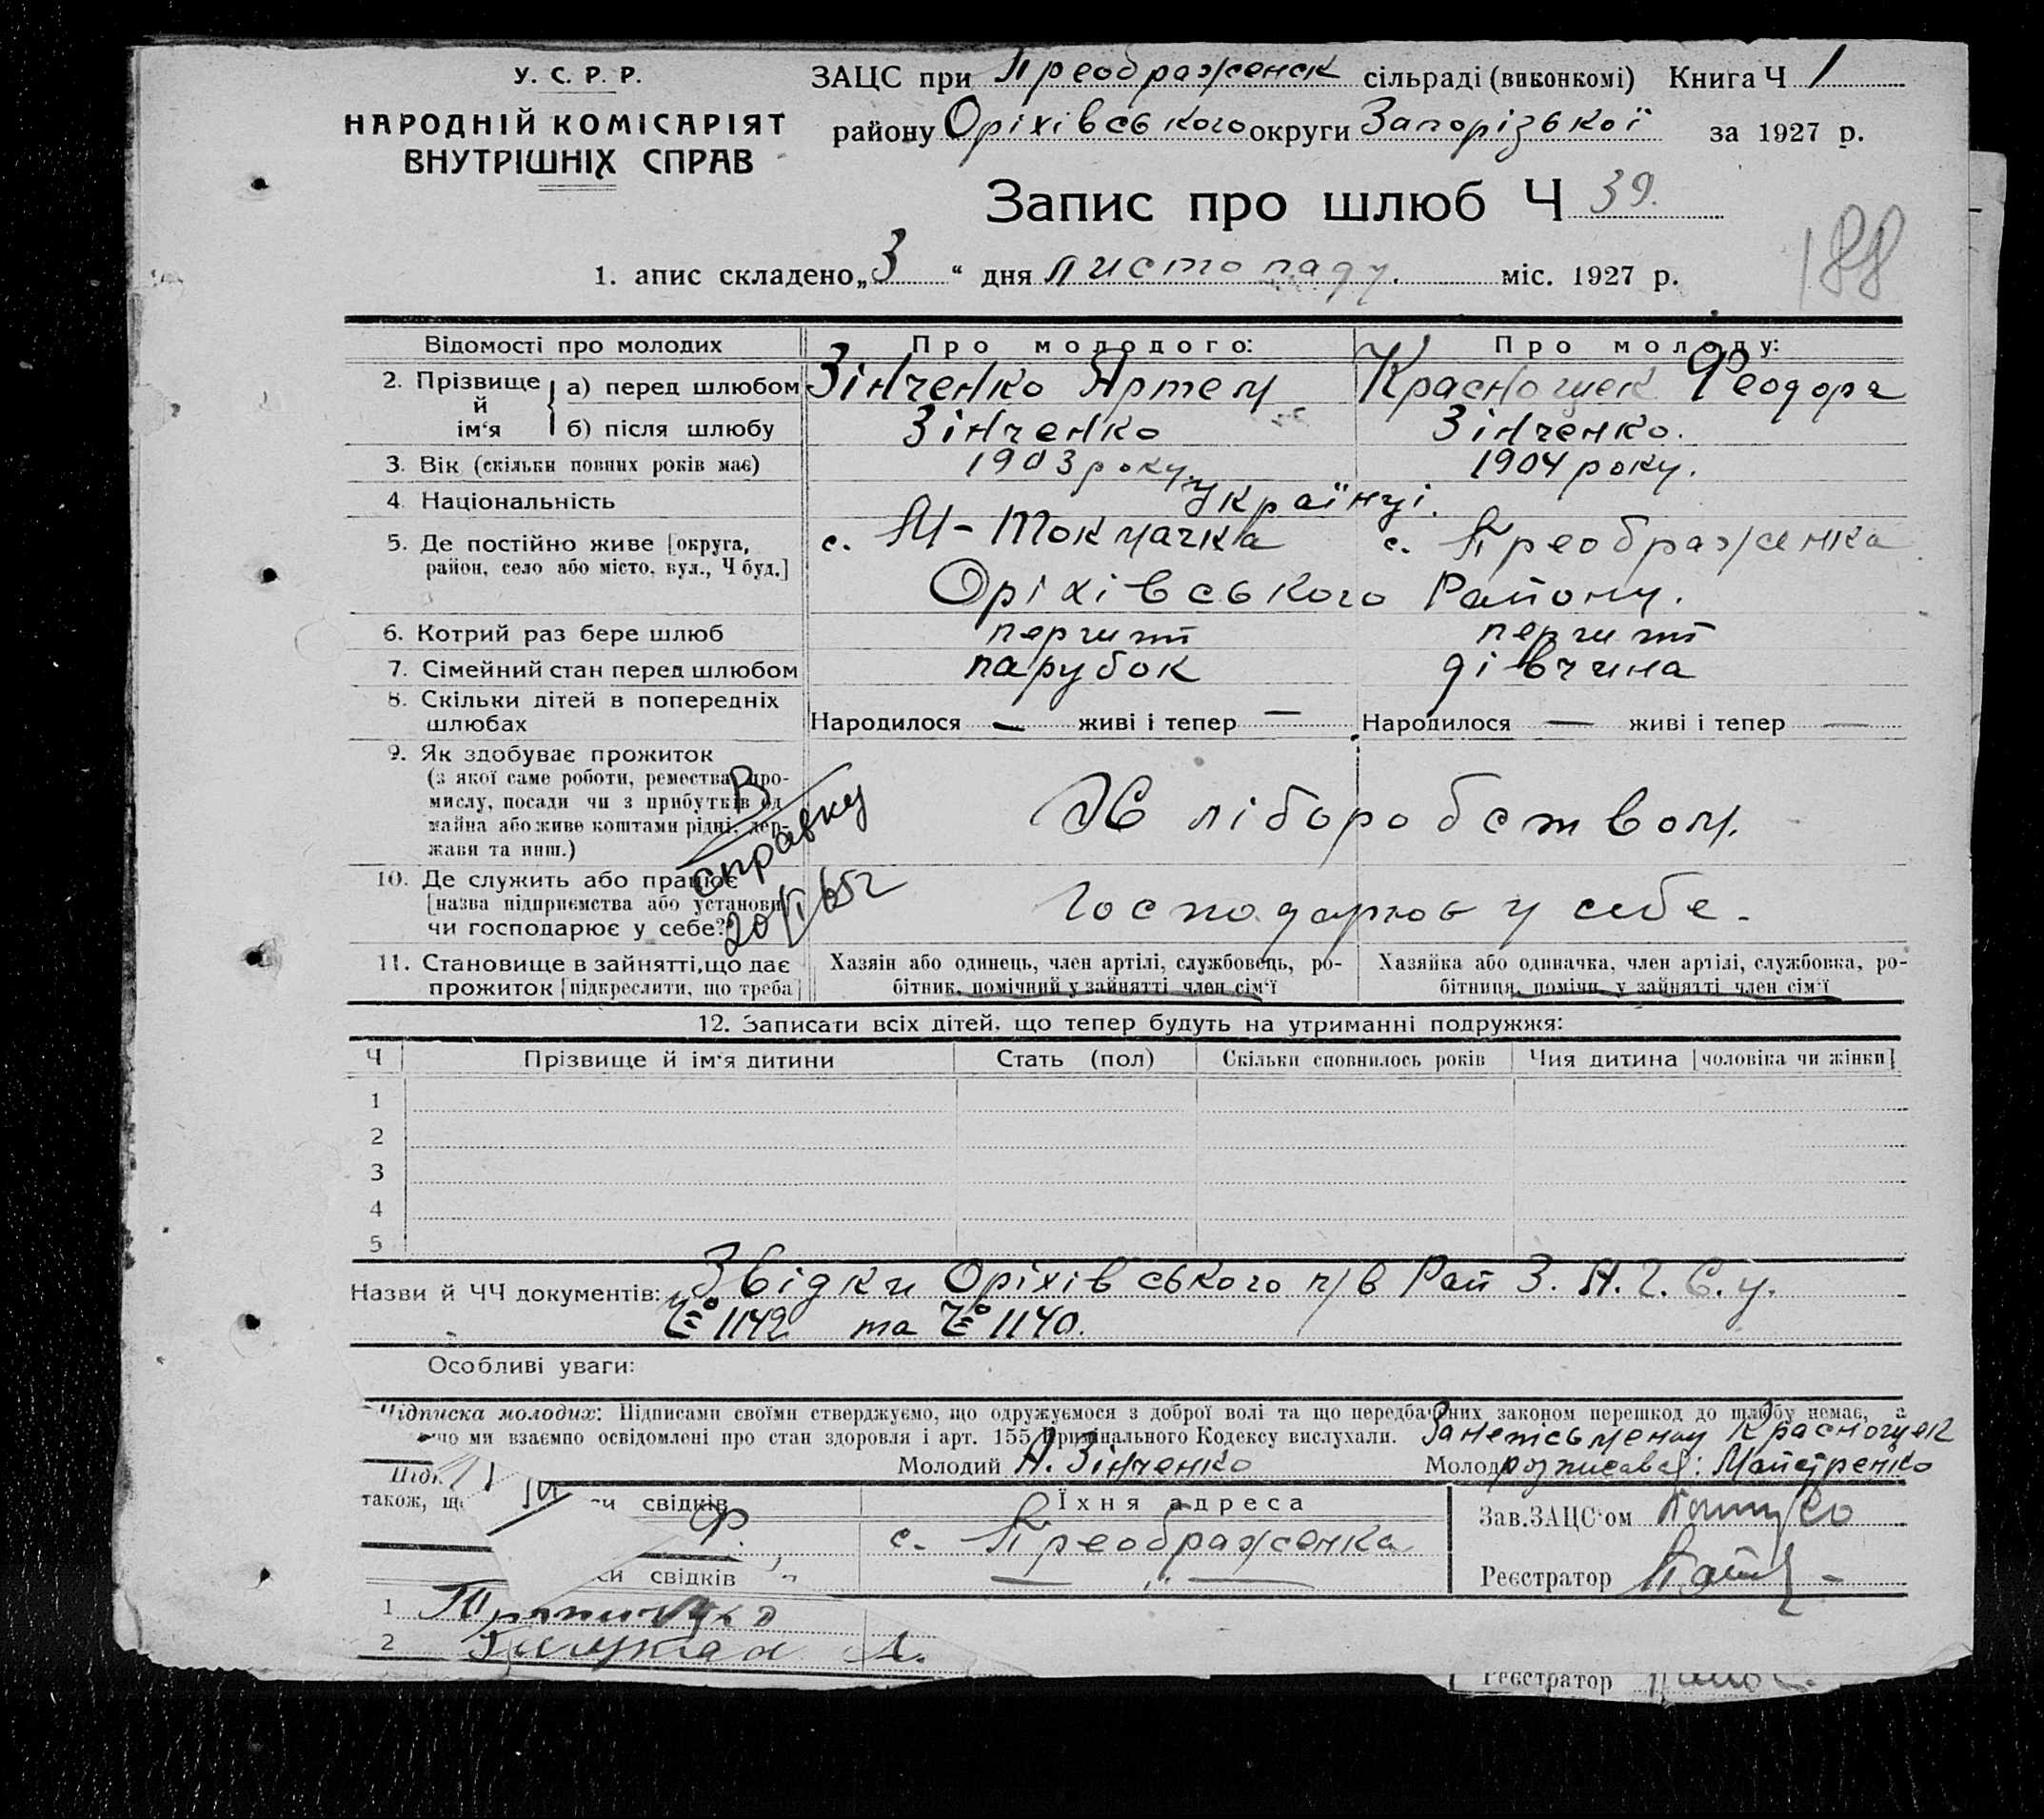 У. С. Р. Р.
НАРОДНІЙ КОМІСАРІЯТ
ВНУТРІШНІХ СПРАВ
ЗАЦС при Преображенск сільраді (виконкомі) Книга Ч 1
району Оріхівського округи Запорізької за 1927 р.
Запис про шлюб Ч 39.
188
1. апис складено „3“ дня листопаду. міс. 1927 р.
Відомості про молодих Про молодого: Про молоду:
2. Прізвище й ім‘я а) перед шлюбом Зінченко Артем Красногчек Феодора
б) після шлюбу Зінченко Зінченко.
3. Вік (скільки повних років має) 1903 року 1904 року.
4. Національність Українці.
5. Де постійно живе [округа, район, село або місто, вул., Ч буд.] с. М-Токмачка с. Преображенка
Оріхівського Району.
6. Котрий раз бере шлюб перший перший
7. Сімейний стан перед шлюбом парубок дівчина
8. Скільки дітей в попередніх шлюбах Народилося — живі і тепер — Народилося — живі і тепер —
9. Як здобуває прожиток
(з якої саме роботи, ремества, про-
мислу, посади чи з прибутків од
майна або живе коштами рідні, дер-
жави та инш.)
Хліборобством.
В справку
10. Де служить або працює
[назва підприємства або установи
чи господарює у себе?]
Господарює у себе.
11. Становище в зайнятті, що дає прожиток [підкреслити, що треба]
Хазяїн або одинець, член артілі, службовець, ро-
бітник, помічний у зайнятті член сім‘ї
Хазяйка або одиначка, член артілі, службовка, ро-
бітниця, помічн. у зайнятті член сім‘ї
12. Записати всіх дітей, що тепер будуть на утриманні подружжя:
Ч Прізвище й ім‘я дитини Стать (пол) Скільки сповнилось років Чия дитина [чоловіка чи жінки]
1
2
3
4
5
Назви й ЧЧ документів: Звідки Оріхівського п/в Рай З. А. Г. С. у.
№ 1142 та № 1140.
Особливі уваги:
Підписка молодих: Підписами своїми стверджуємо, що одружуємося з доброї волі та що передбачених законом перешкод до шлюбу немає, а
що ми взаємно освідомлені про стан здоровля і арт. 155 Кримінального Кодексу вислухали. За неписьменну Красногчек
Молодий А. Зінченко Молод розписався: Майстренко
також, що си свідків Їхня адреса Зав. ЗАЦС‘ом
с. Преображенка
си свідків — „ — Реєстратор
1
2
Реєстратор